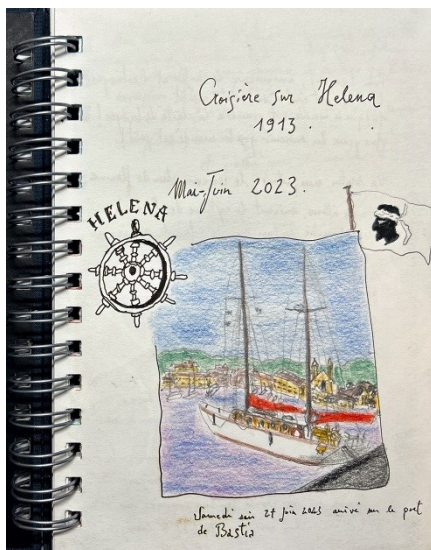 Croisière sur Helena
1913.
Mai-Juin 2023.
HELENA
Samedi soir 27 juin 2023 arrivé sur le port
de Bastia